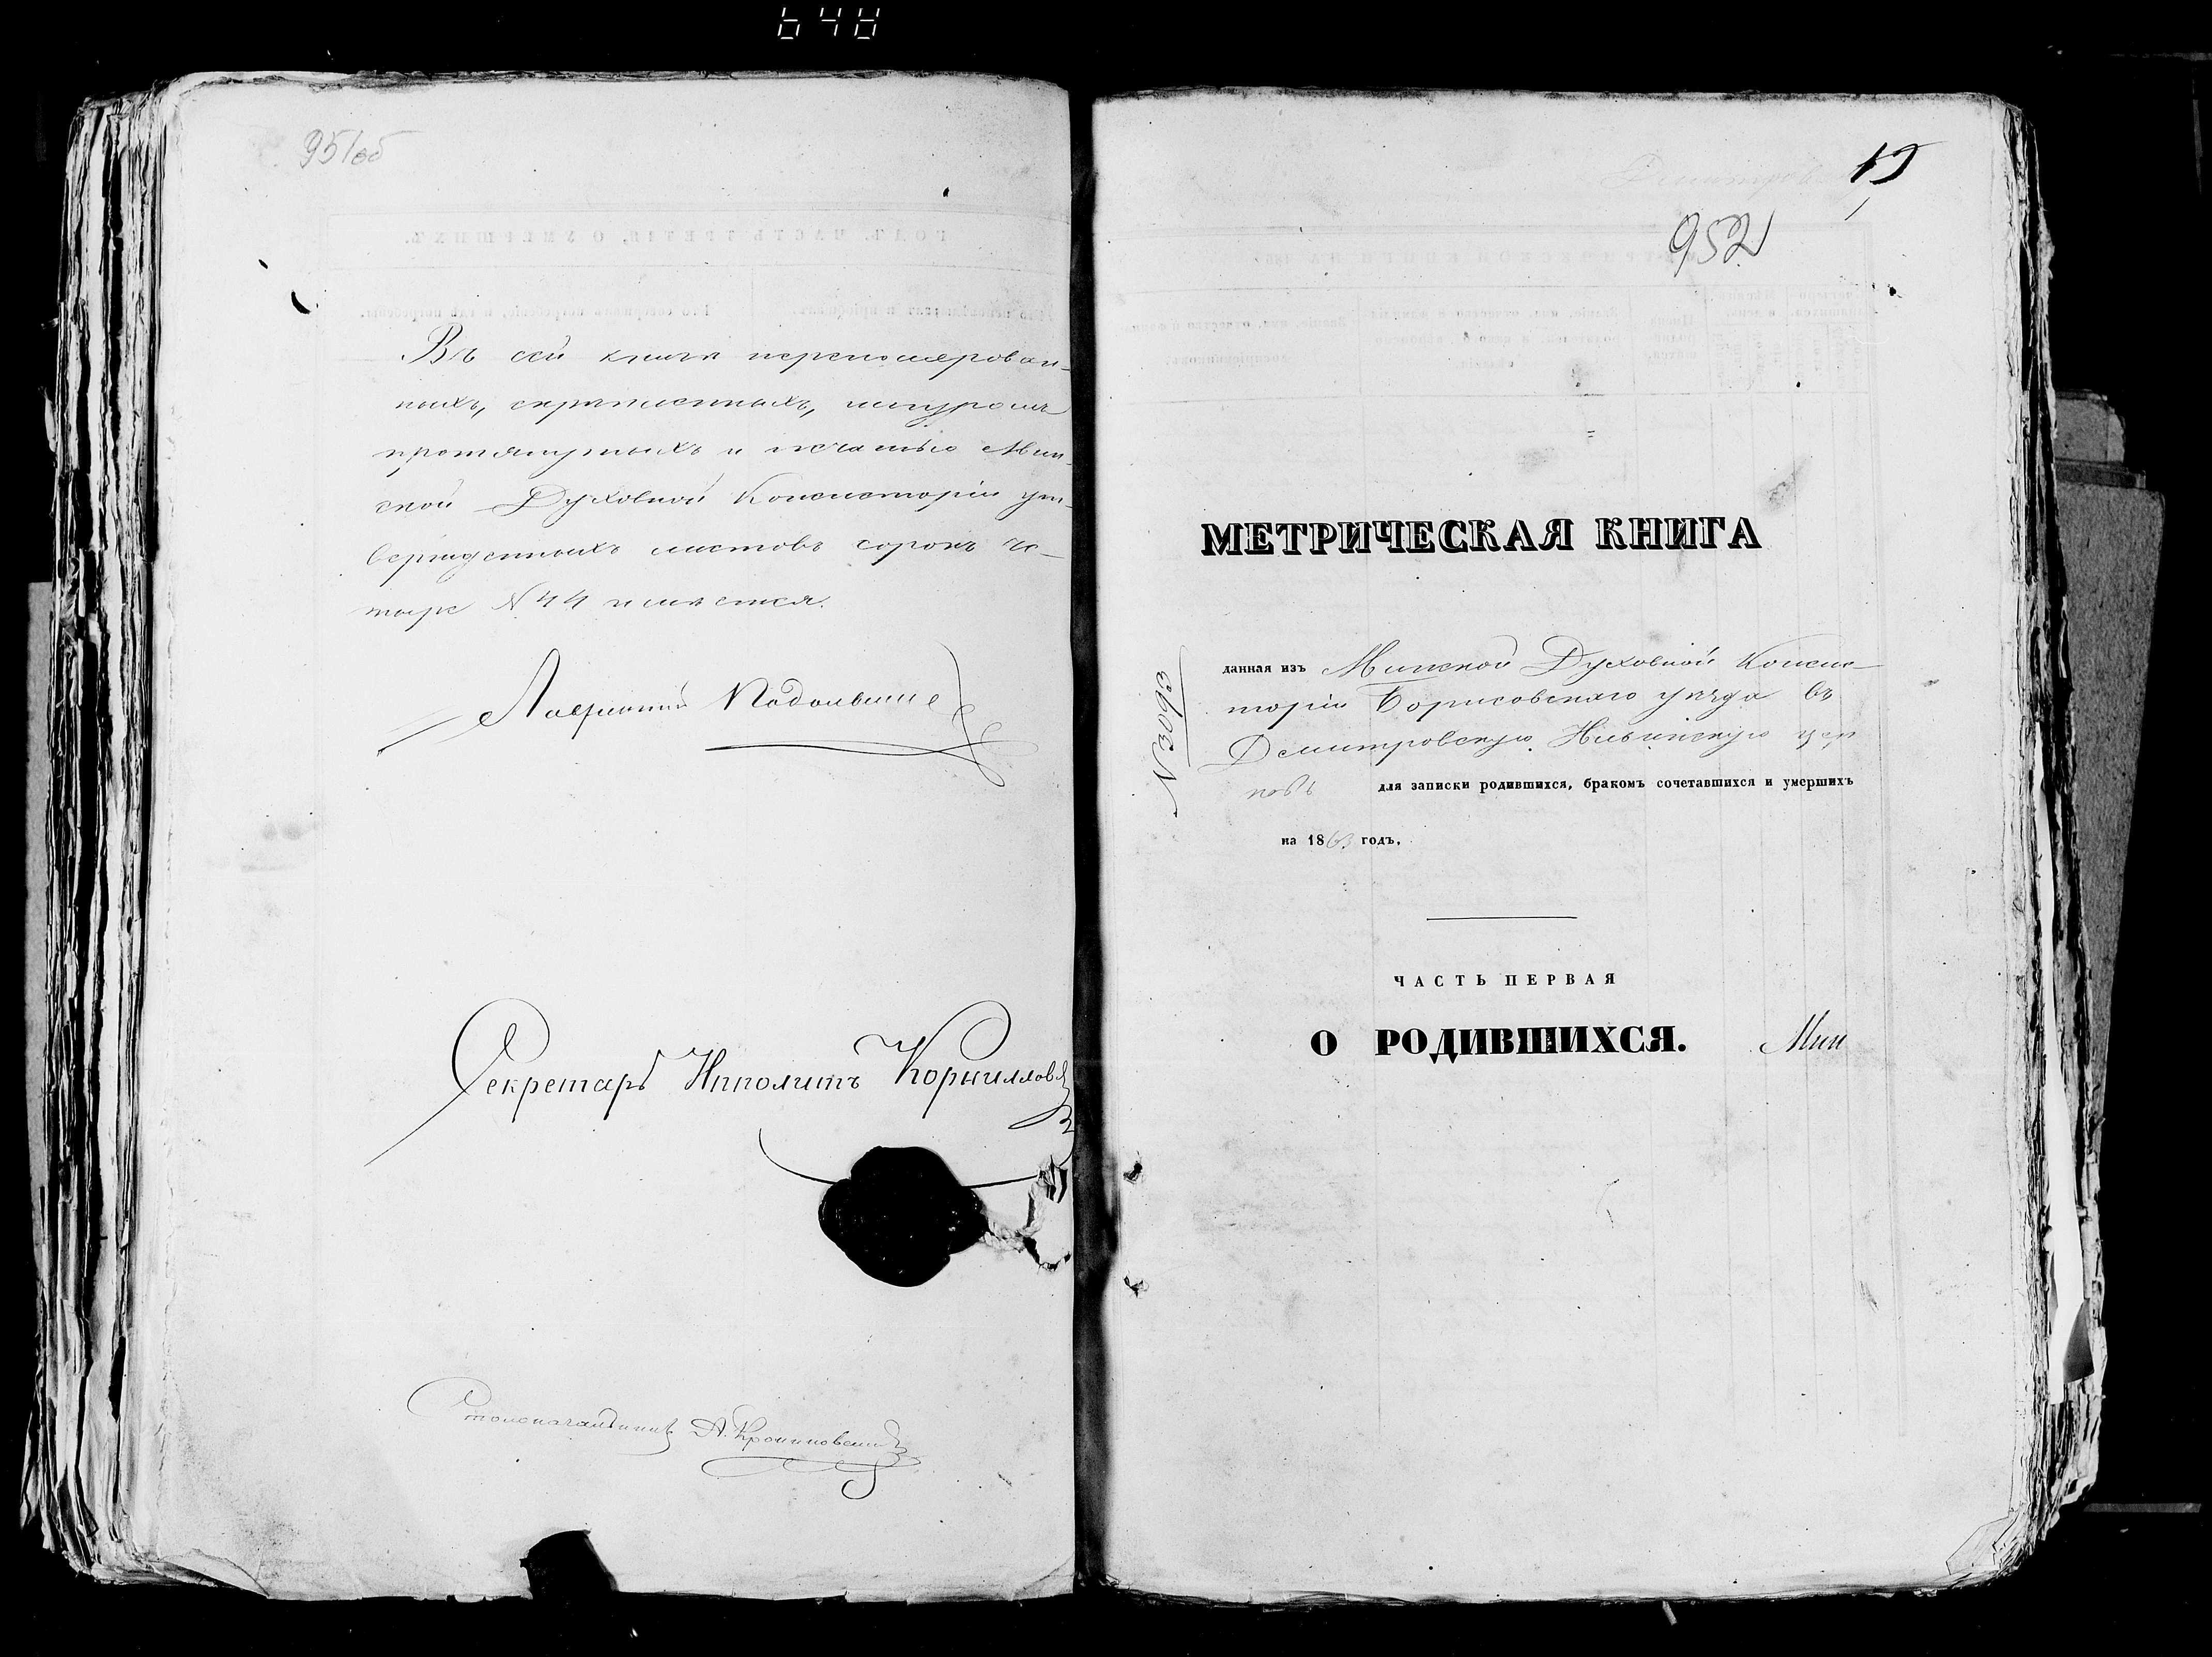 648
951об
Въ сей книгѣ перенумерован-
ныхъ, скрѣпленныхъ, шнуромъ
протянутыхъ и печатью Мин-
ской Духовной Консисторіи ут-
вержденныхъ листовъ сорокъ че-
тыре № 44 имѣется.
Секретарь Ипполитъ Корнилловъ
Столоначальникъ А.
952
МЕТРИЧЕСКАЯ КНИГА
№ 3093
данная изъ Минской Духовной Консис-
торіи Борисовскаго уѣзда въ
Демитровскую цер
ковь для записки родившихся, бракомъ сочетавшихся и умершихъ
на 1863 годъ.
ЧАСТЬ ПЕРВАЯ
О РОДИВШИХСЯ. Мин